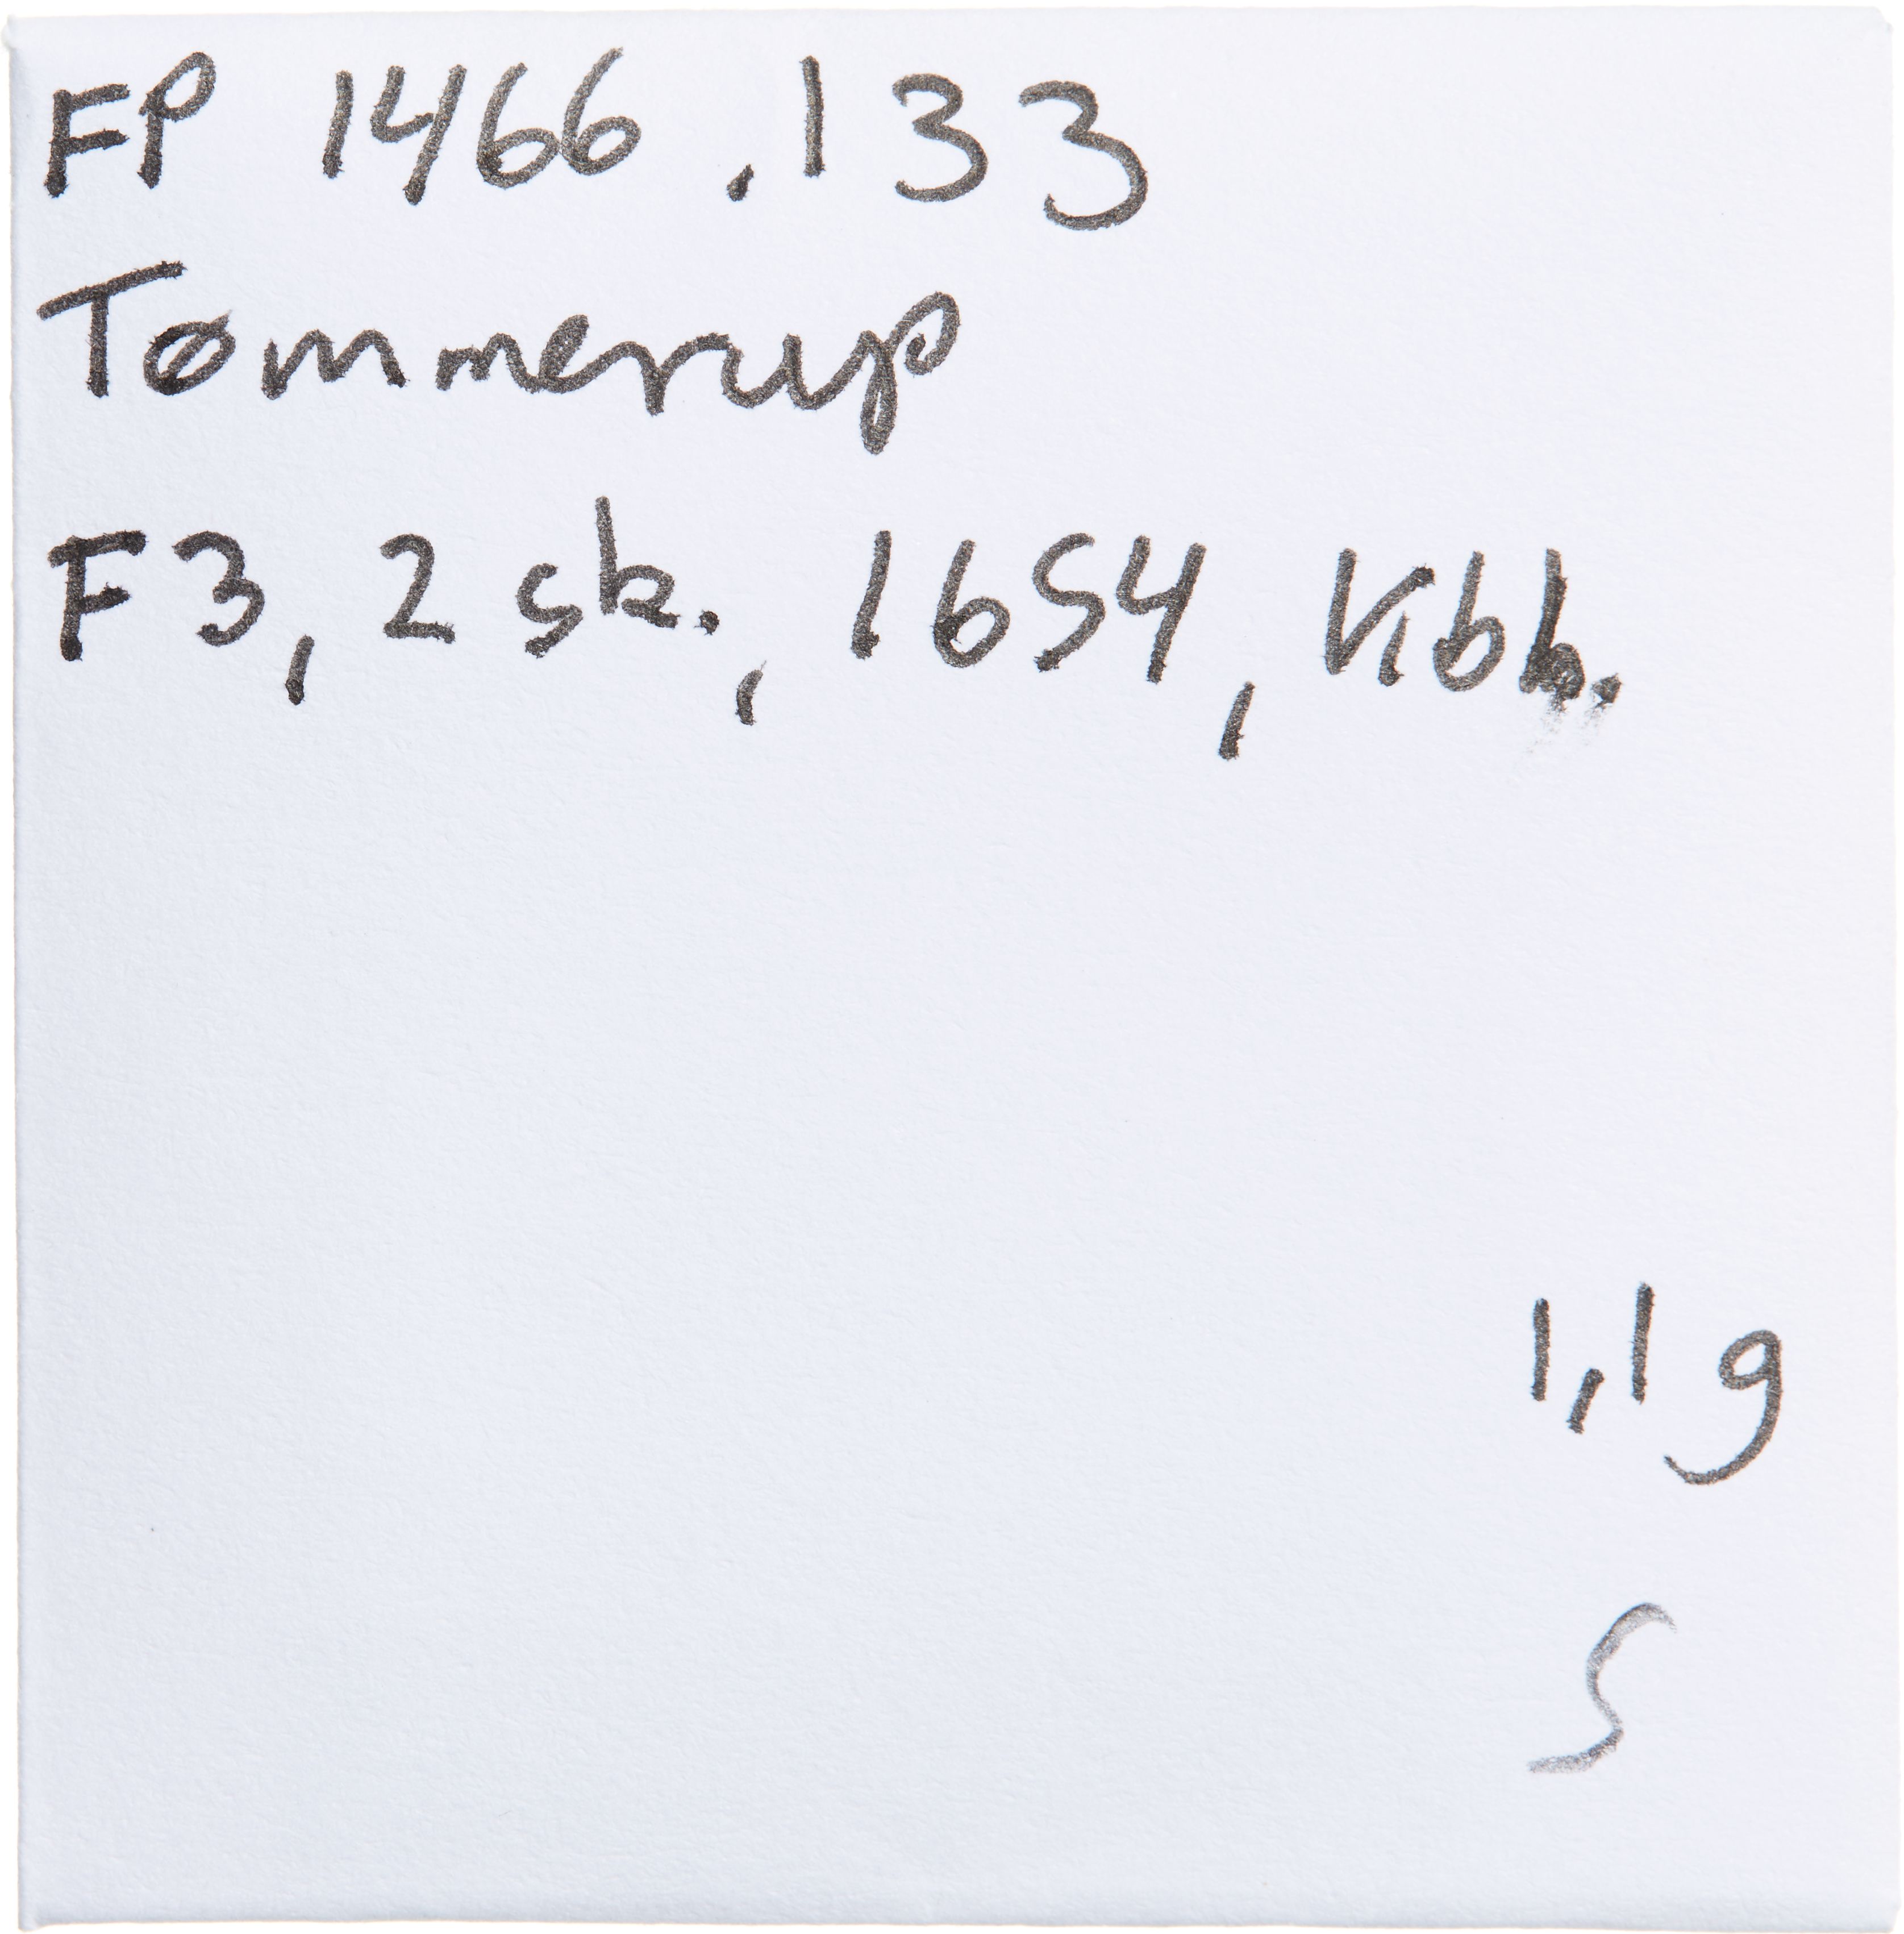 FP 1466.133
Tømmerup
F3, 2 sk., 1654, Kbh.
1,1 g
S